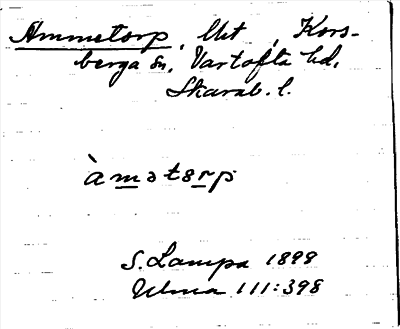 Ammetorp, Utt, Kors-
berga sn, Vartofta hd,
Skarab. l.
àmətərp
S. Lampa 1899
Ulma 111:398